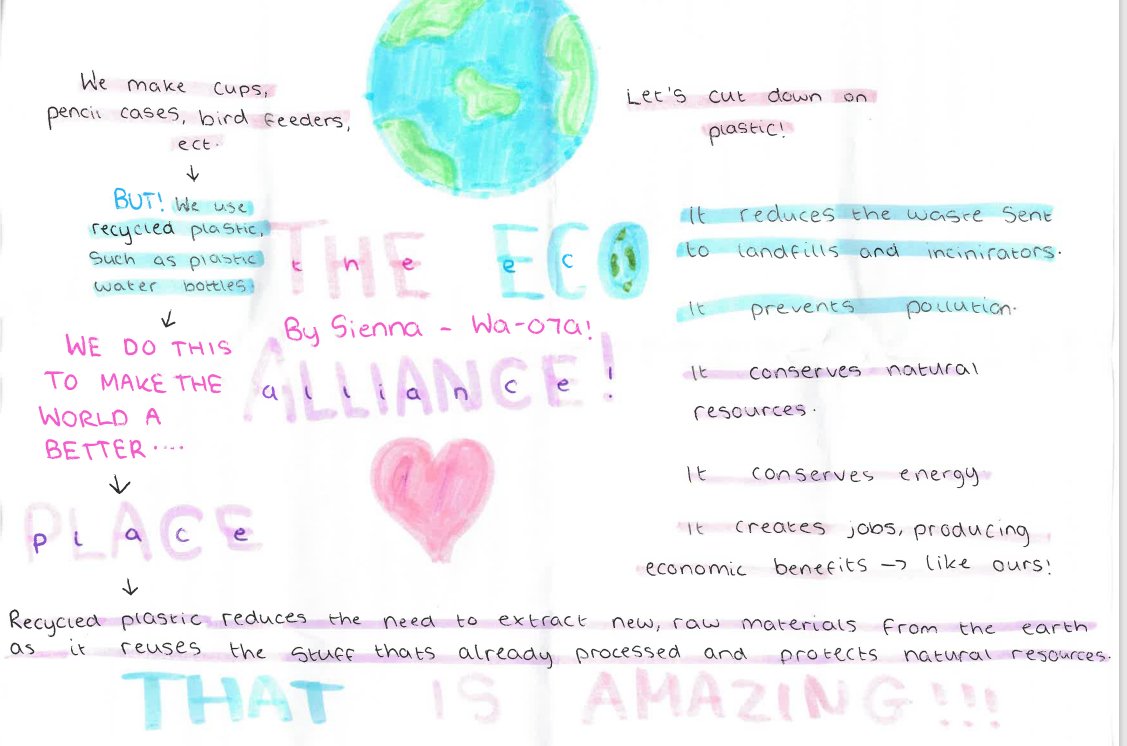 We make cups,
pencil cases, bird feeders,
ect.
BUT! We use
recycled plastic,
Such as plastic
water bottles
WE DO THIS
TO MAKE THE
WORLD A
BETTER....
PLACE
place
THE ECO
the eco
By Sienna - Wa-07a!
ALLIANCE!
alliance!
Let's cut down on
plastic!
It reduces the waste Sent
to landfills and incinirators.
It prevents pollution.
It conserves natural
resources.
It conserves energy
It creates jobs, producing
economic benefits → like ours!
Recycled plastic reduces the need to extract new, raw materials from the earth
as it reuses the stuff thats already processed and protects natural resources.
THAT IS AMAZING!!!